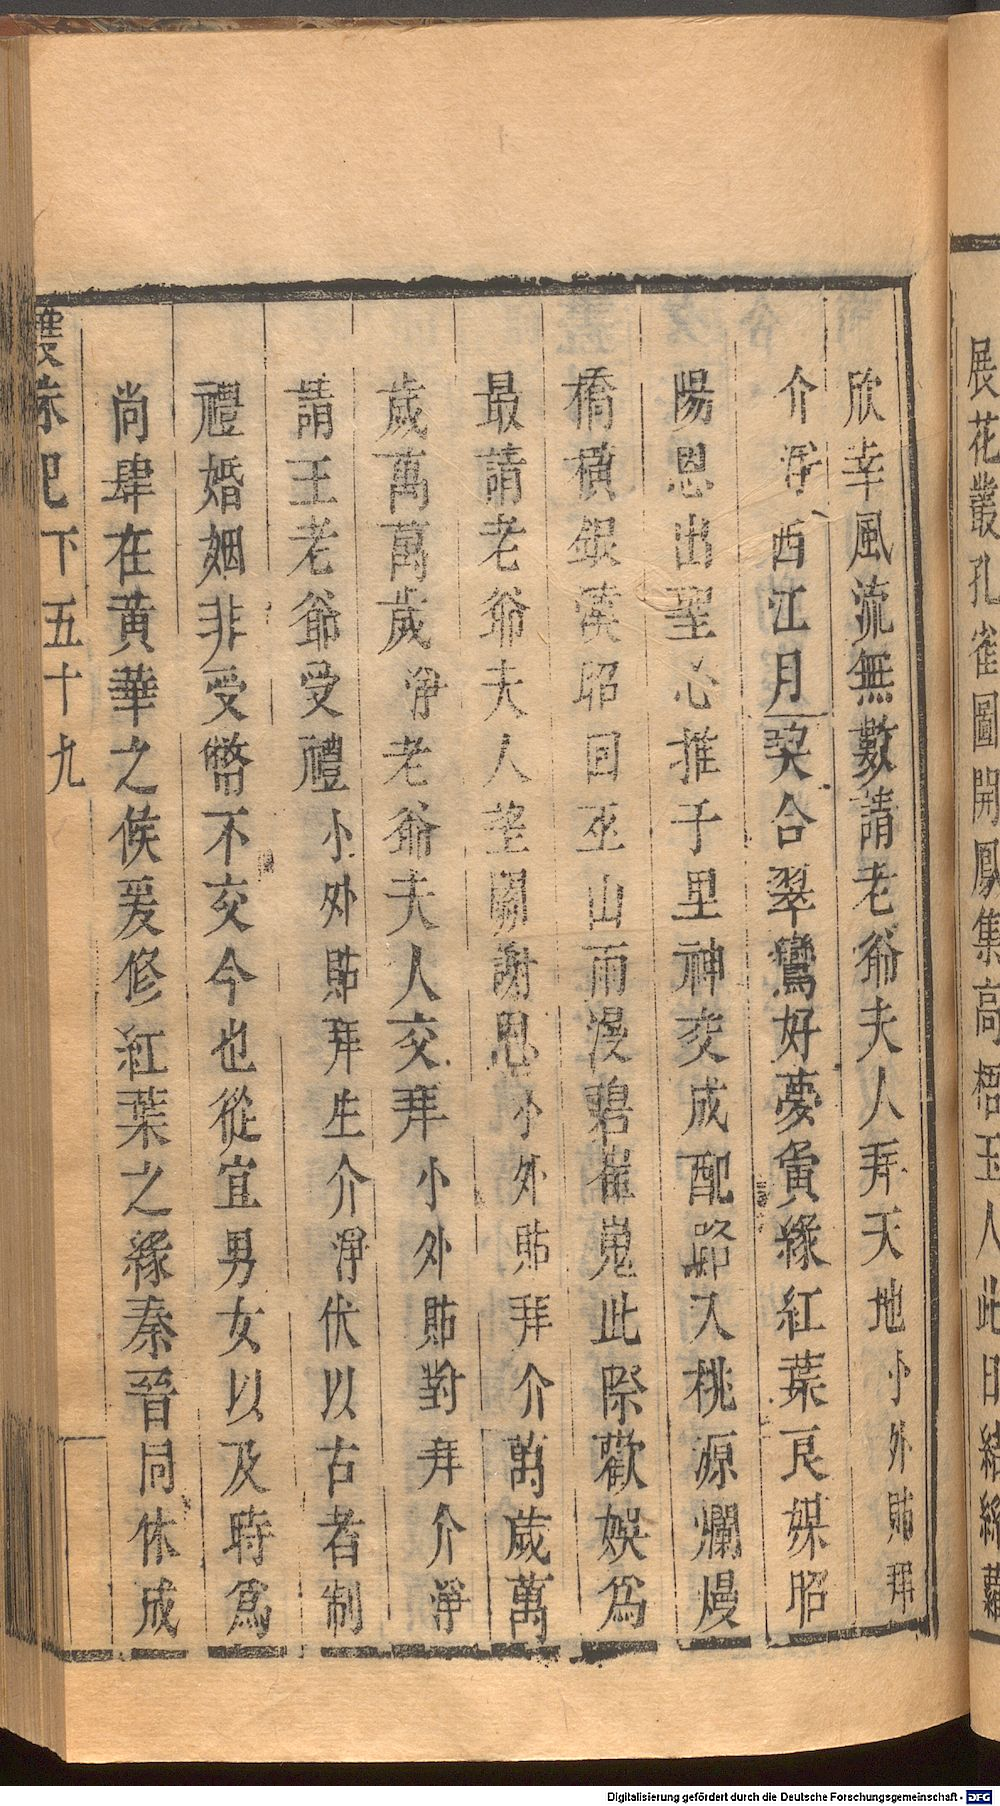 展花叢孔雀圖開鳳集高梧玉人此日結絲蘿
欣幸風流無數請老爺夫人拜天地小外貼拜
介淨西江月契合翠鸞好夢寅緣紅葉良媒昭
陽恩出聖心推千里神交成配路入桃源爛熳
橋橫銀漢昭回巫山雨漫碧崔嵬此際歡娛爲
最請老爷夫人望闕謝恩小外貼拜介萬歲萬
歲萬萬歲淨老爺夫人交拜小外貼對拜介淨
請王老爺受禮小外貼拜生介淨伏以古者制
禮婚姻非受幣不交今也從宜男女以及時爲
尚肆在黄華之候爰修紅葉之緣秦晉同休成
雙珠記下五十九
Digitalisierung gefördert durch die Deutsche Forschungsgemeinschaft - DFG